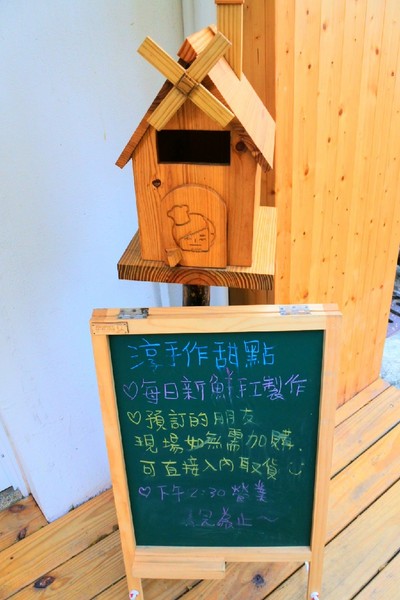 淳手作甜點
♡每日新鮮手工製作
♡預訂的朋友
現場如無需加購
可直接入內取貨
♡下午2:30營業